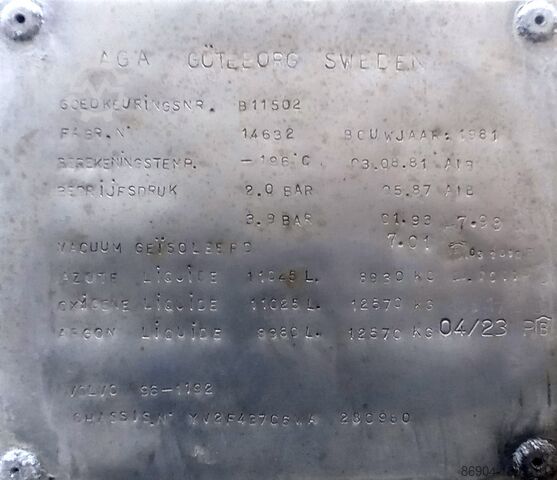 AGA GÖTEBORG SWEDEN
GOEDKEURINGSNR. B11502
FABR.N 14632 BOUWJAAR: 1981
BEREKENINGSTEMP. -196°C 03.08.81 AIB
BEDRIJFSDRUK 2.0 BAR 05.87 AIB
3.9 BAR 01.93 -7.98
VACUUM GEÏSOLEERD 7.01
AZOTE LIQUIDE 11045 L. 8930 KG
OXIGENE LIQUIDE 11025 L. 12570 KG
ARGON LIQUIDE 8980 L. 12570 KG 04/23
VOLVO 96-1192
CHASSISN° 230980